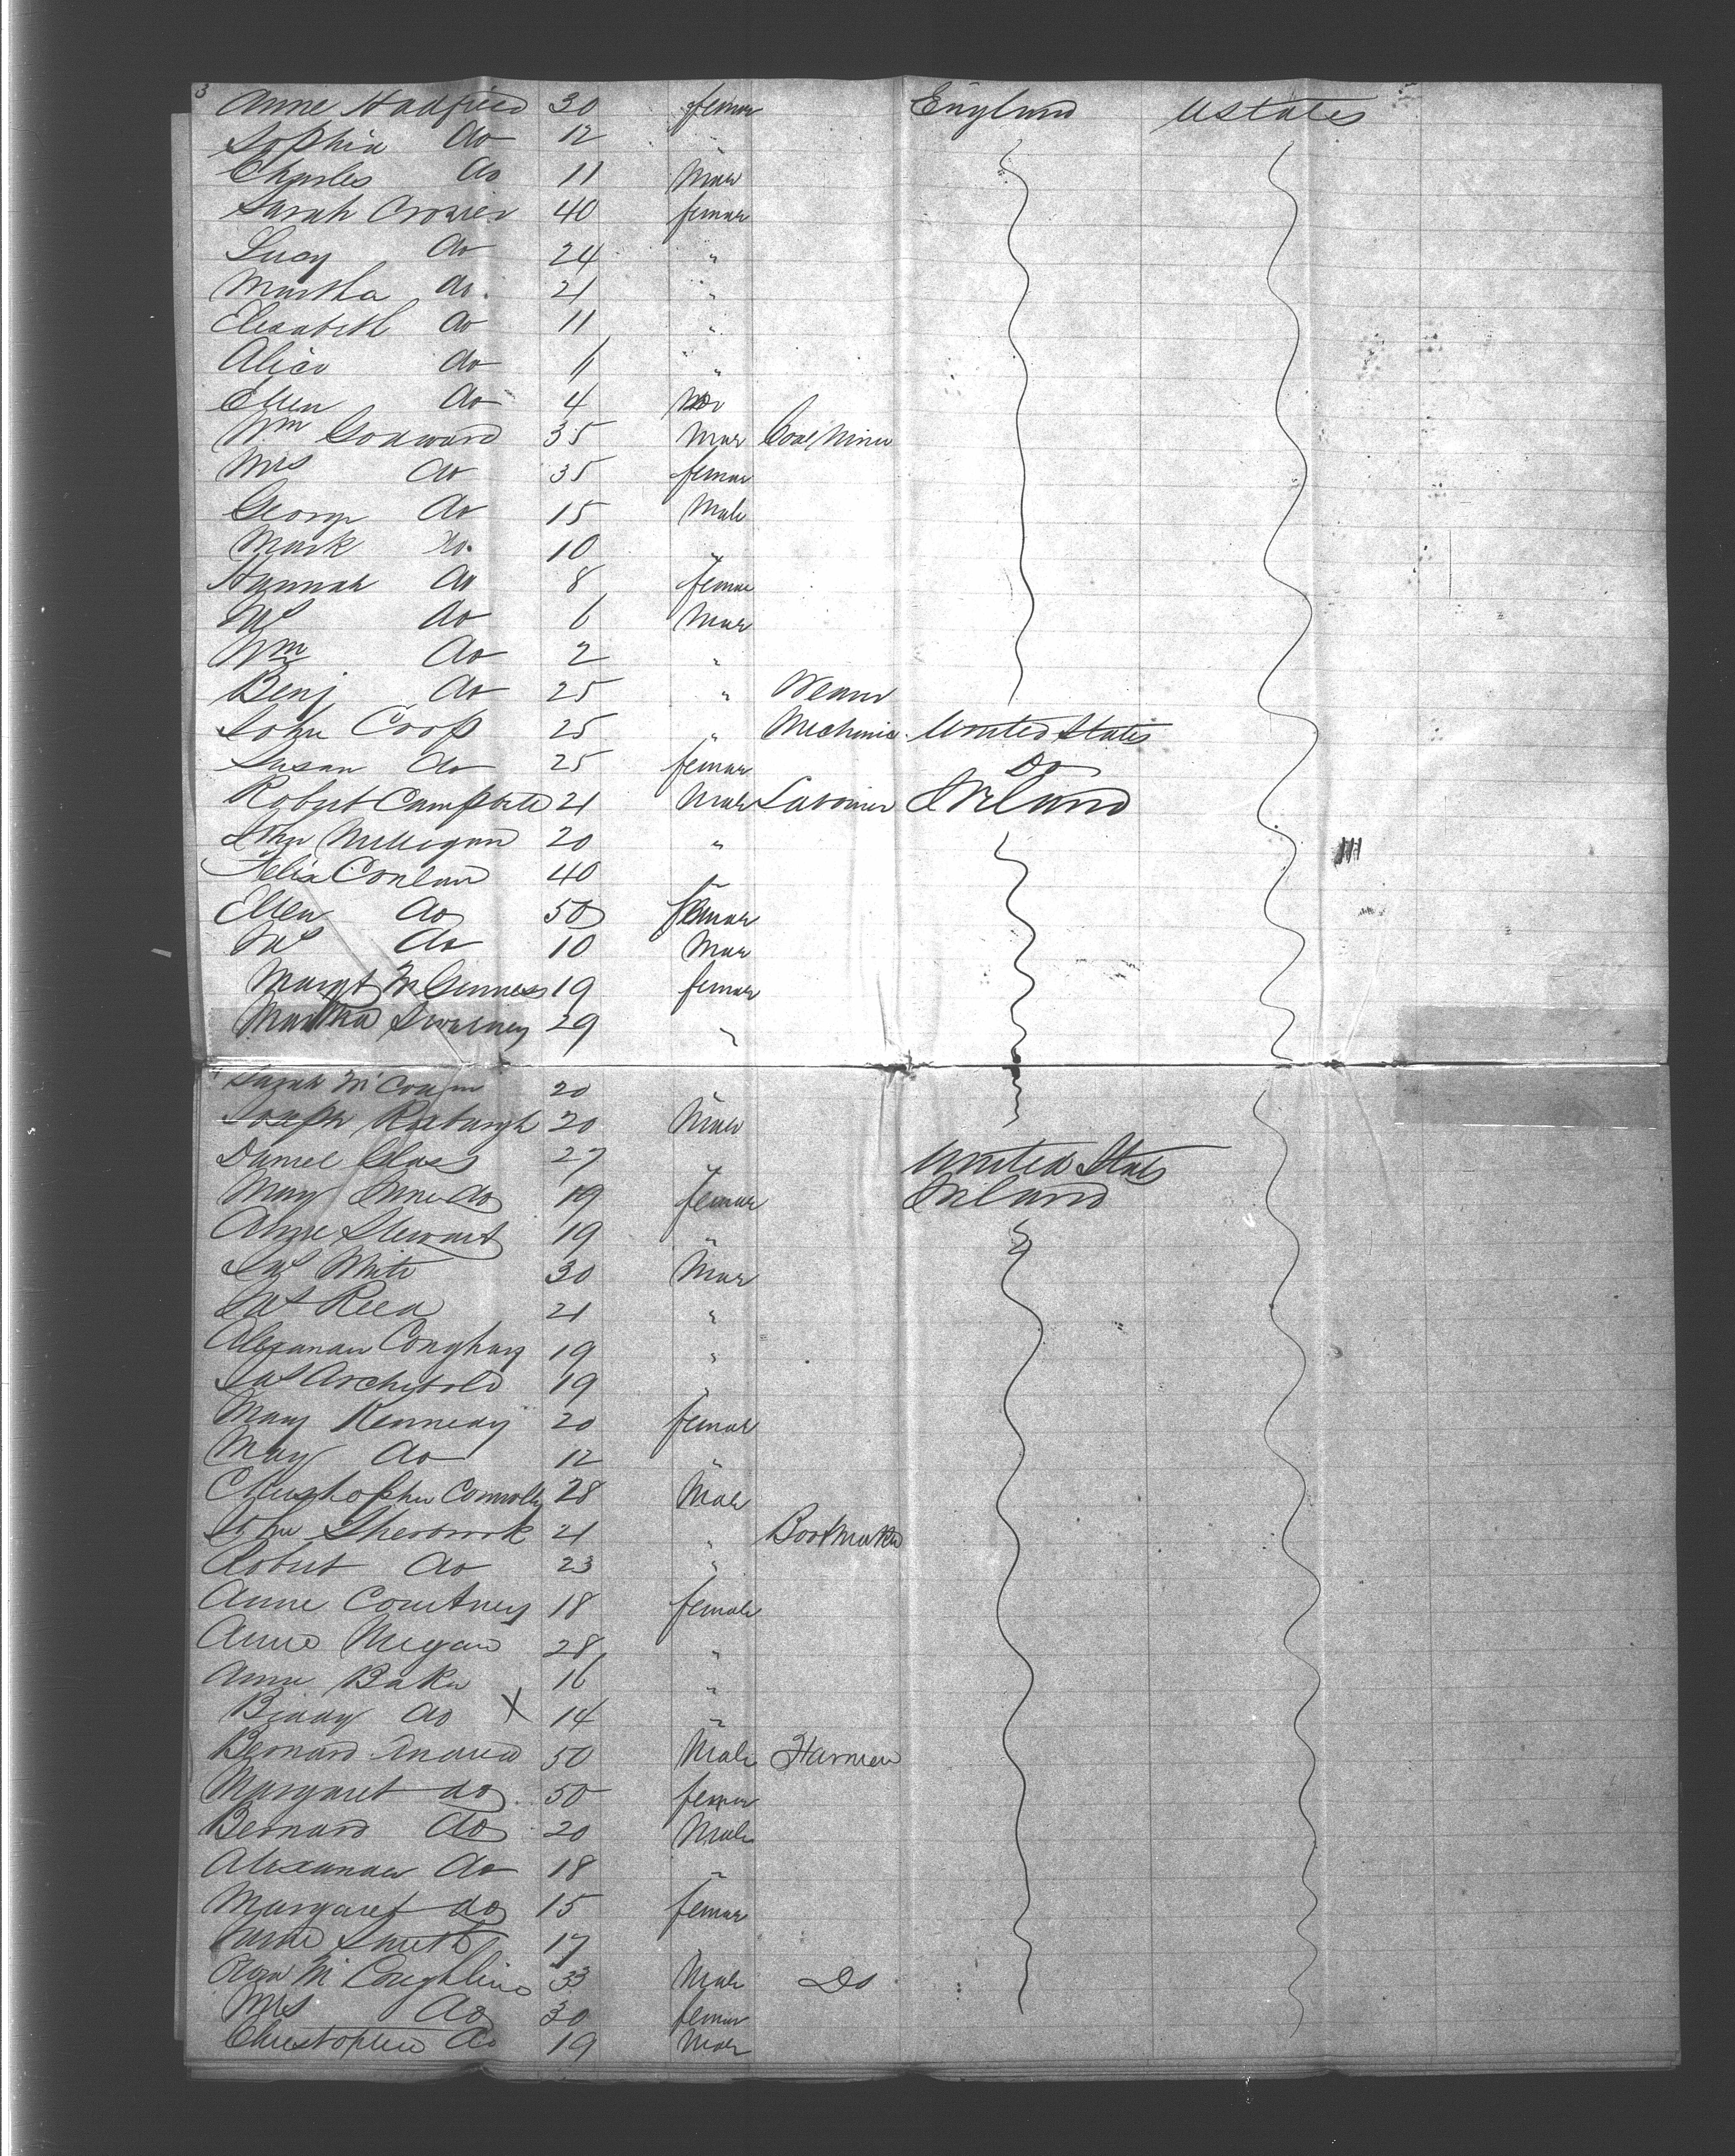 3 Anne Hadfield 30 female England UStates
Sophia do 12 "
Charles do 11 Male
Sarah Crozier 40 female
Lucy do 24 "
Martha do. 21 "
Elizabeth do 11 "
Alice do 11 "
Ellen do 4
Wm Godward 35 Male Coal Miner
Mrs do 35 female
George do 15 Male
Mark do. 10 "
Hannah do 8 female
do 6 Male
Wm do 2 "
Benj do 25 " Weaver
John Coop 25 " Mechanic United States
Susan do 25 female Do
Robert Campbell 21 Male Labourer Ireland
John Milligan 20 "
Felix Conlan 40 "
Ellen do 50 female
do 10 Male
Margt McGinness 19 female
Martha Sweeney 29 "
Sarah 20 "
Joseph Roxburgh 20 Male
Daniel Glass 27 " United States
Mary Jane do 19 female Ireland
Anne Stewart 19 "
Jas White 30 Male
Jas Reed 21 "
Alexander 19 "
Jas Archibold 19 "
Mary Kennedy 20 female
Mary do 12 "
Christopher Connolly 28 Male
John Sherbrook 21 " Bootmaker
Robert do 23 "
Anne Courtney 18 female
Anne Megan 28 "
Anne Baker 16 "
Biddy do X 14 "
Bernard 50 Male Farmer
Margaret do 50 female
Bernard do 20 Male
Alexander do 18 "
Margaret do 15 female
Smith 17
McCoughlin 33 Male Do
Mrs do 30 female
Christopher do 19 Male